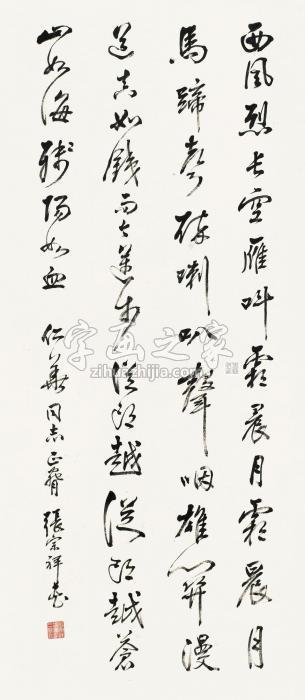 西風烈長空雁叫霜晨月霜晨月
馬蹄聲碎喇叭聲咽雄關漫
道真如鐵而今邁步從頭越從頭越蒼
山如海殘陽如血 仁華同志正 張宗祥書
字画之家
zihuazhijia.com